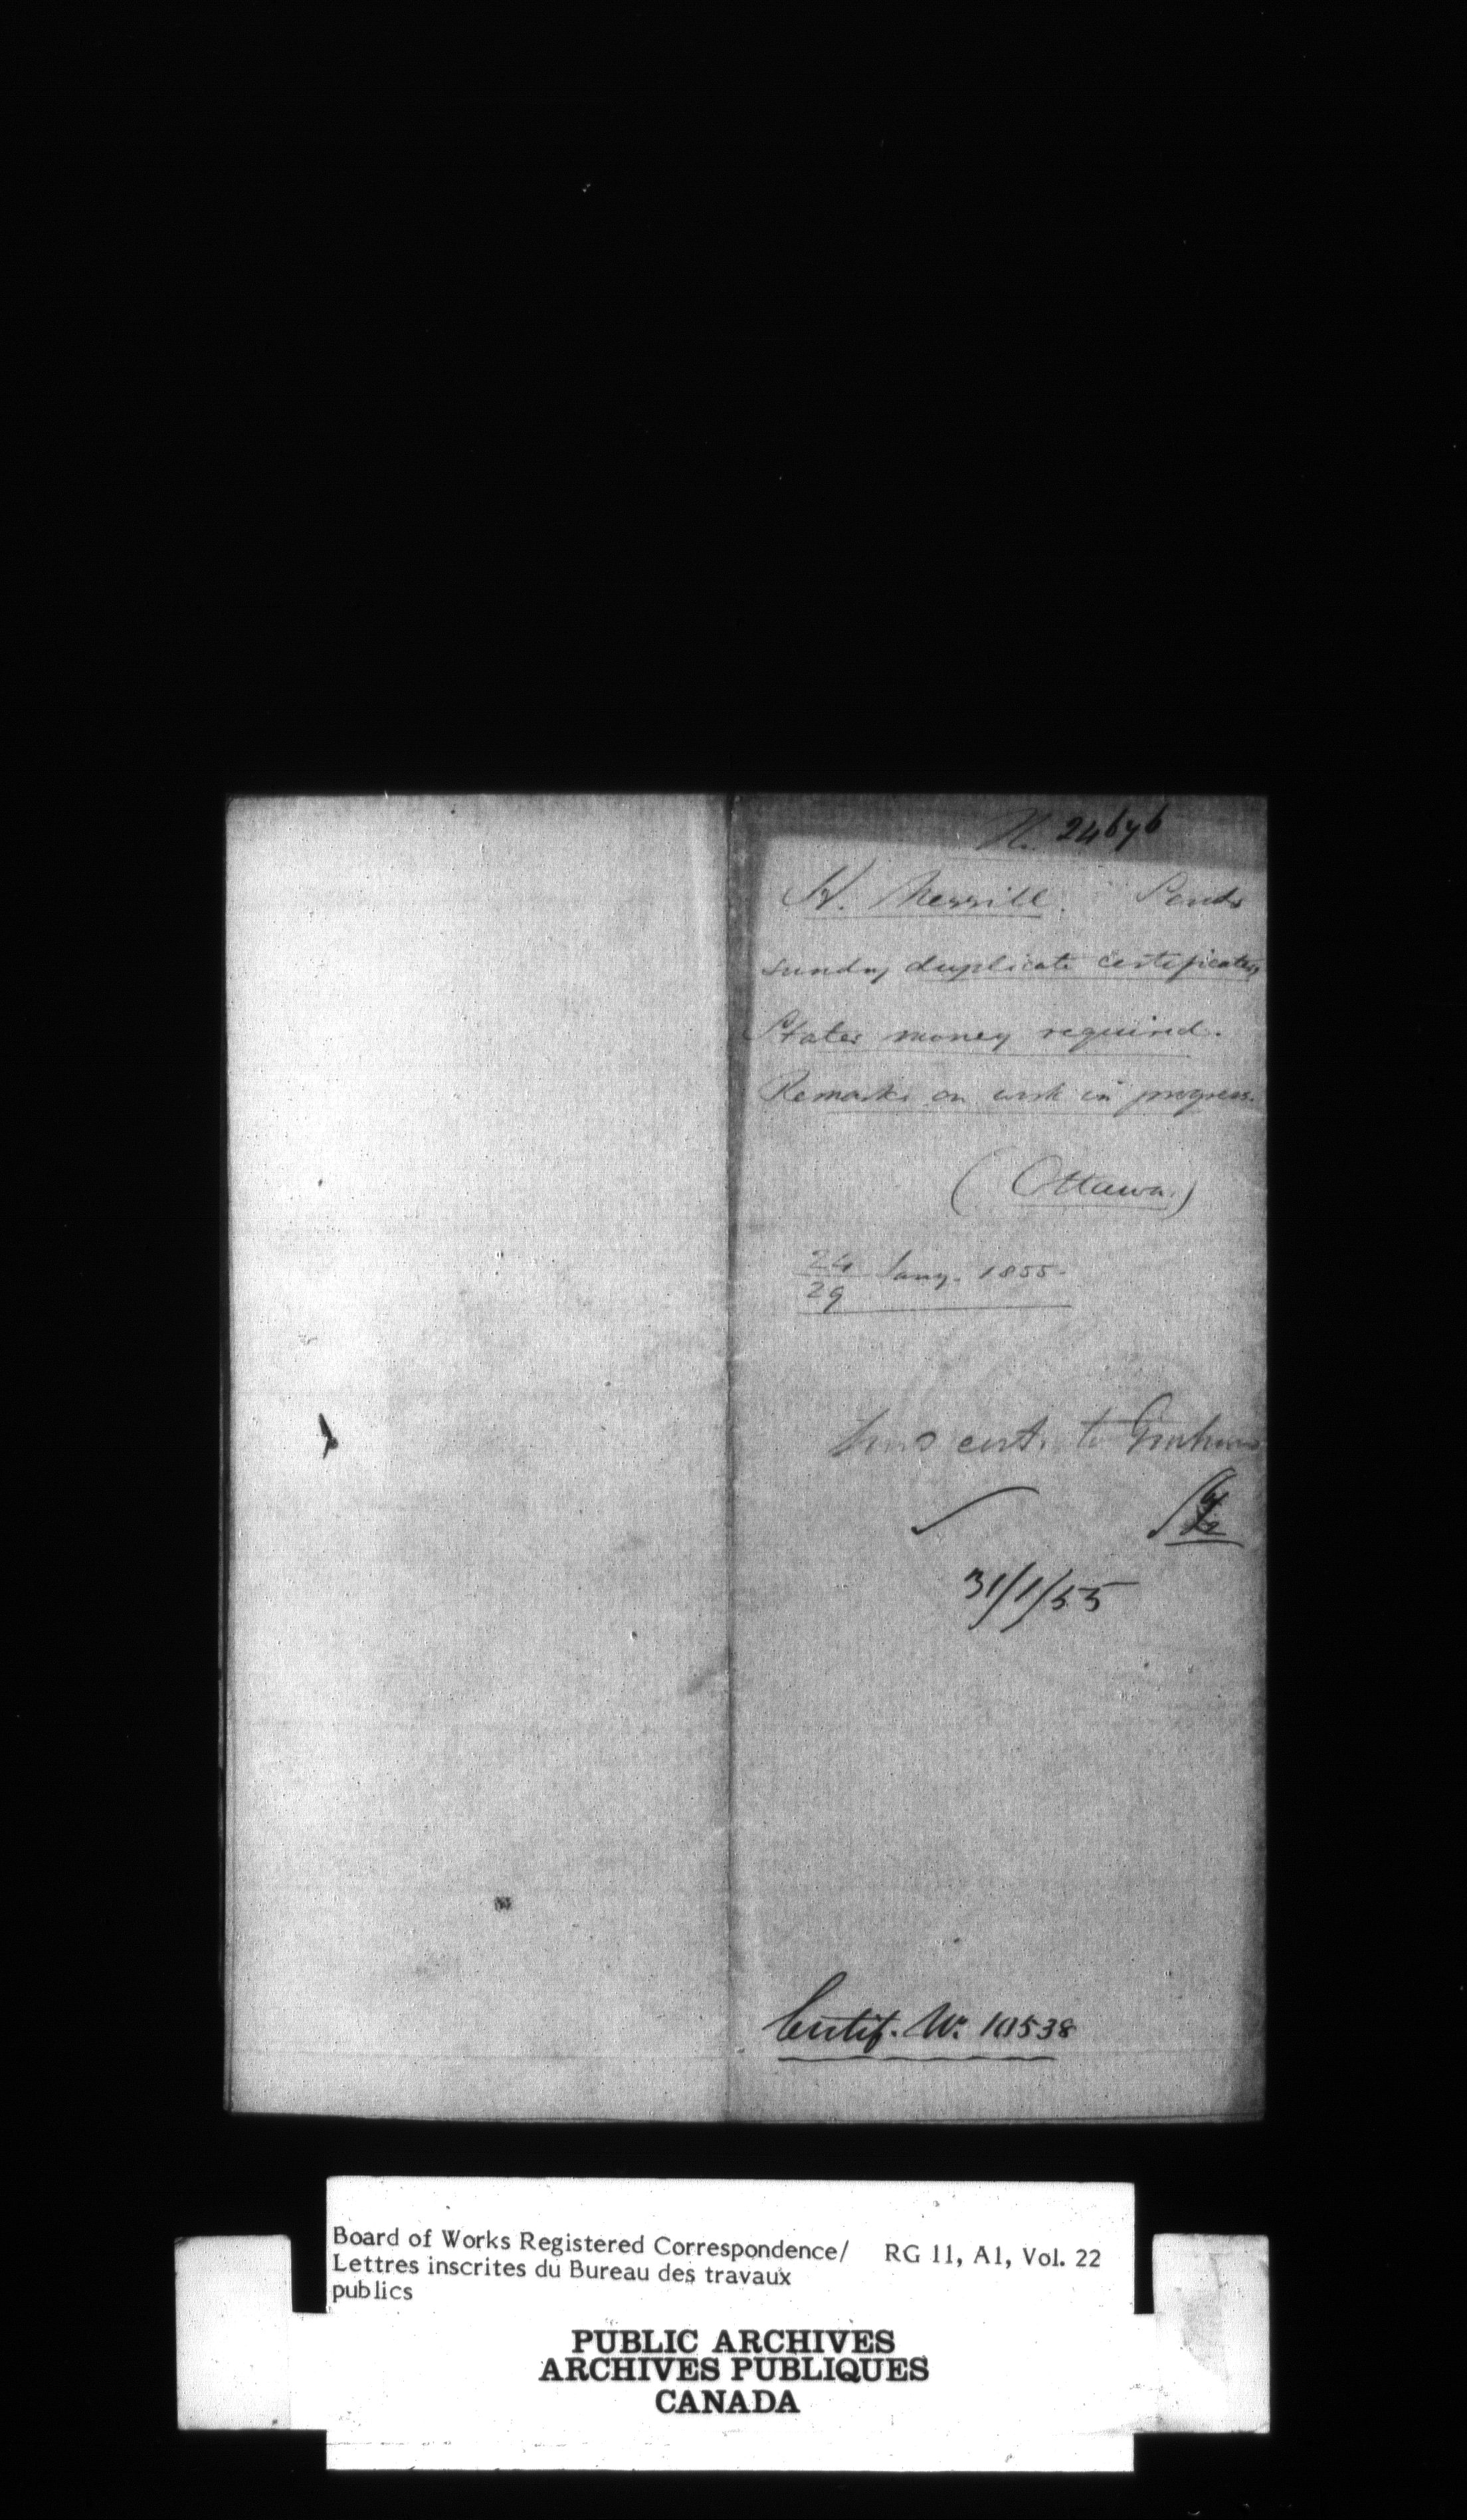 N. 24676
H. Merrill. Sends
sundry duplicate certificates,
States money required.
Remarks on work in progress.
(Ottawa.)
24
29 Jany. 1855-
cert. to
31/1/55
Certif. No. 10538
Board of Works Registered Correspondence/ RG 11, A1, Vol. 22
Lettres inscrites du Bureau des travaux
publics
PUBLIC ARCHIVES
ARCHIVES PUBLIQUES
CANADA